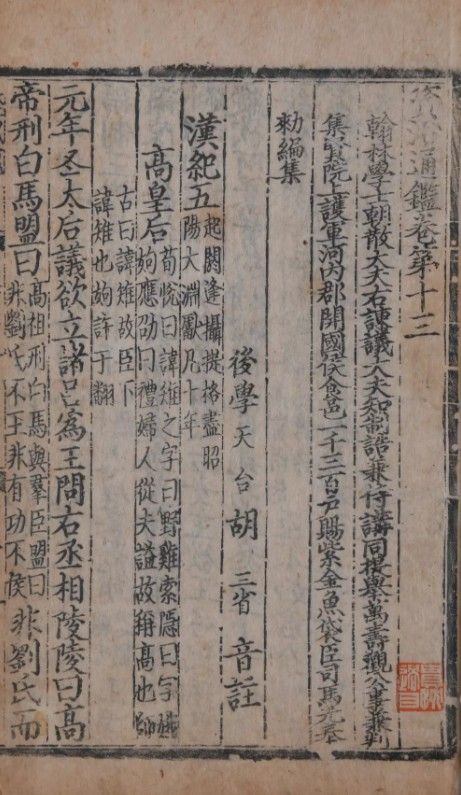 資治通鑑卷第十三
翰林學士朝散大夫右諫議大夫知制誥兼侍講同提舉萬壽觀公事兼判
集賢院上護軍河內郡開國侯食邑一千三百戶賜紫金魚袋臣司馬光奉
勑編集
後學天台胡三省音註
漢紀五
起閼逢攝提格盡昭
陽大淵獻凡十年
高皇后
荀悅曰諱雉之字曰野雞索隱曰字娥
姁應劭曰禮婦人從夫謚故稱高也師
古曰諱雉故臣下
諱雉也姁許于翻
元年冬太后議欲立諸呂爲王問右丞相陵陵曰高
帝刑白馬盟曰
高祖刑白馬與羣臣盟曰
非劉氏不王非有功不侯
非劉氏而